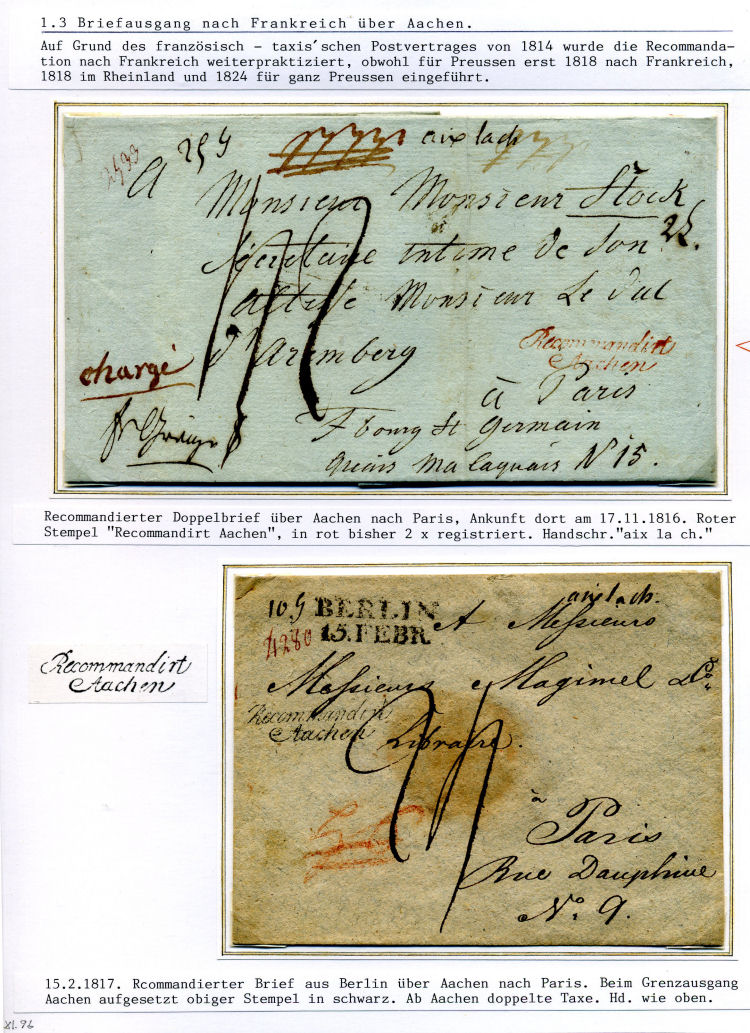 1.3 Briefausgang nach Frankreich über Aachen.
Auf Grund des französisch – taxis´schen Postvertrages von 1814 wurde die Recommanda-
tion nach Frankreich weiterpraktiziert, obwohl für Preussen erst 1818 nach Frankreich,
1818 im Rheinland und 1824 für ganz Preussen eingeführt.
aix lach
A
Monsieur Monsieur Stock
Secretaire intime de Son
altesse Monsieur Le duc
d'Aremberg
Recommandirt
Aachen
chargé
à Paris
Fbourg St Germain
Quais Malaquais N° 15.
Recommandierter Doppelbrief über Aachen nach Paris, Ankunft dort am 17.11.1816. Roter
Stempel "Recommandirt Aachen", in rot bisher 2 x registriert. Handschr."aix la ch."
aixlach.
10 g BERLIN
15.FEBR.
4280
A Messieurs
Messieurs Magimel & Co.
Recommandirt
Aachen
Recommandirt
Aachen
Libraire.
à
Paris
Rue Dauphine
No. 9.
15.2.1817. Rcommandierter Brief aus Berlin über Aachen nach Paris. Beim Grenzausgang
Aachen aufgesetzt obiger Stempel in schwarz. Ab Aachen doppelte Taxe. Hd. wie oben.
XI.96